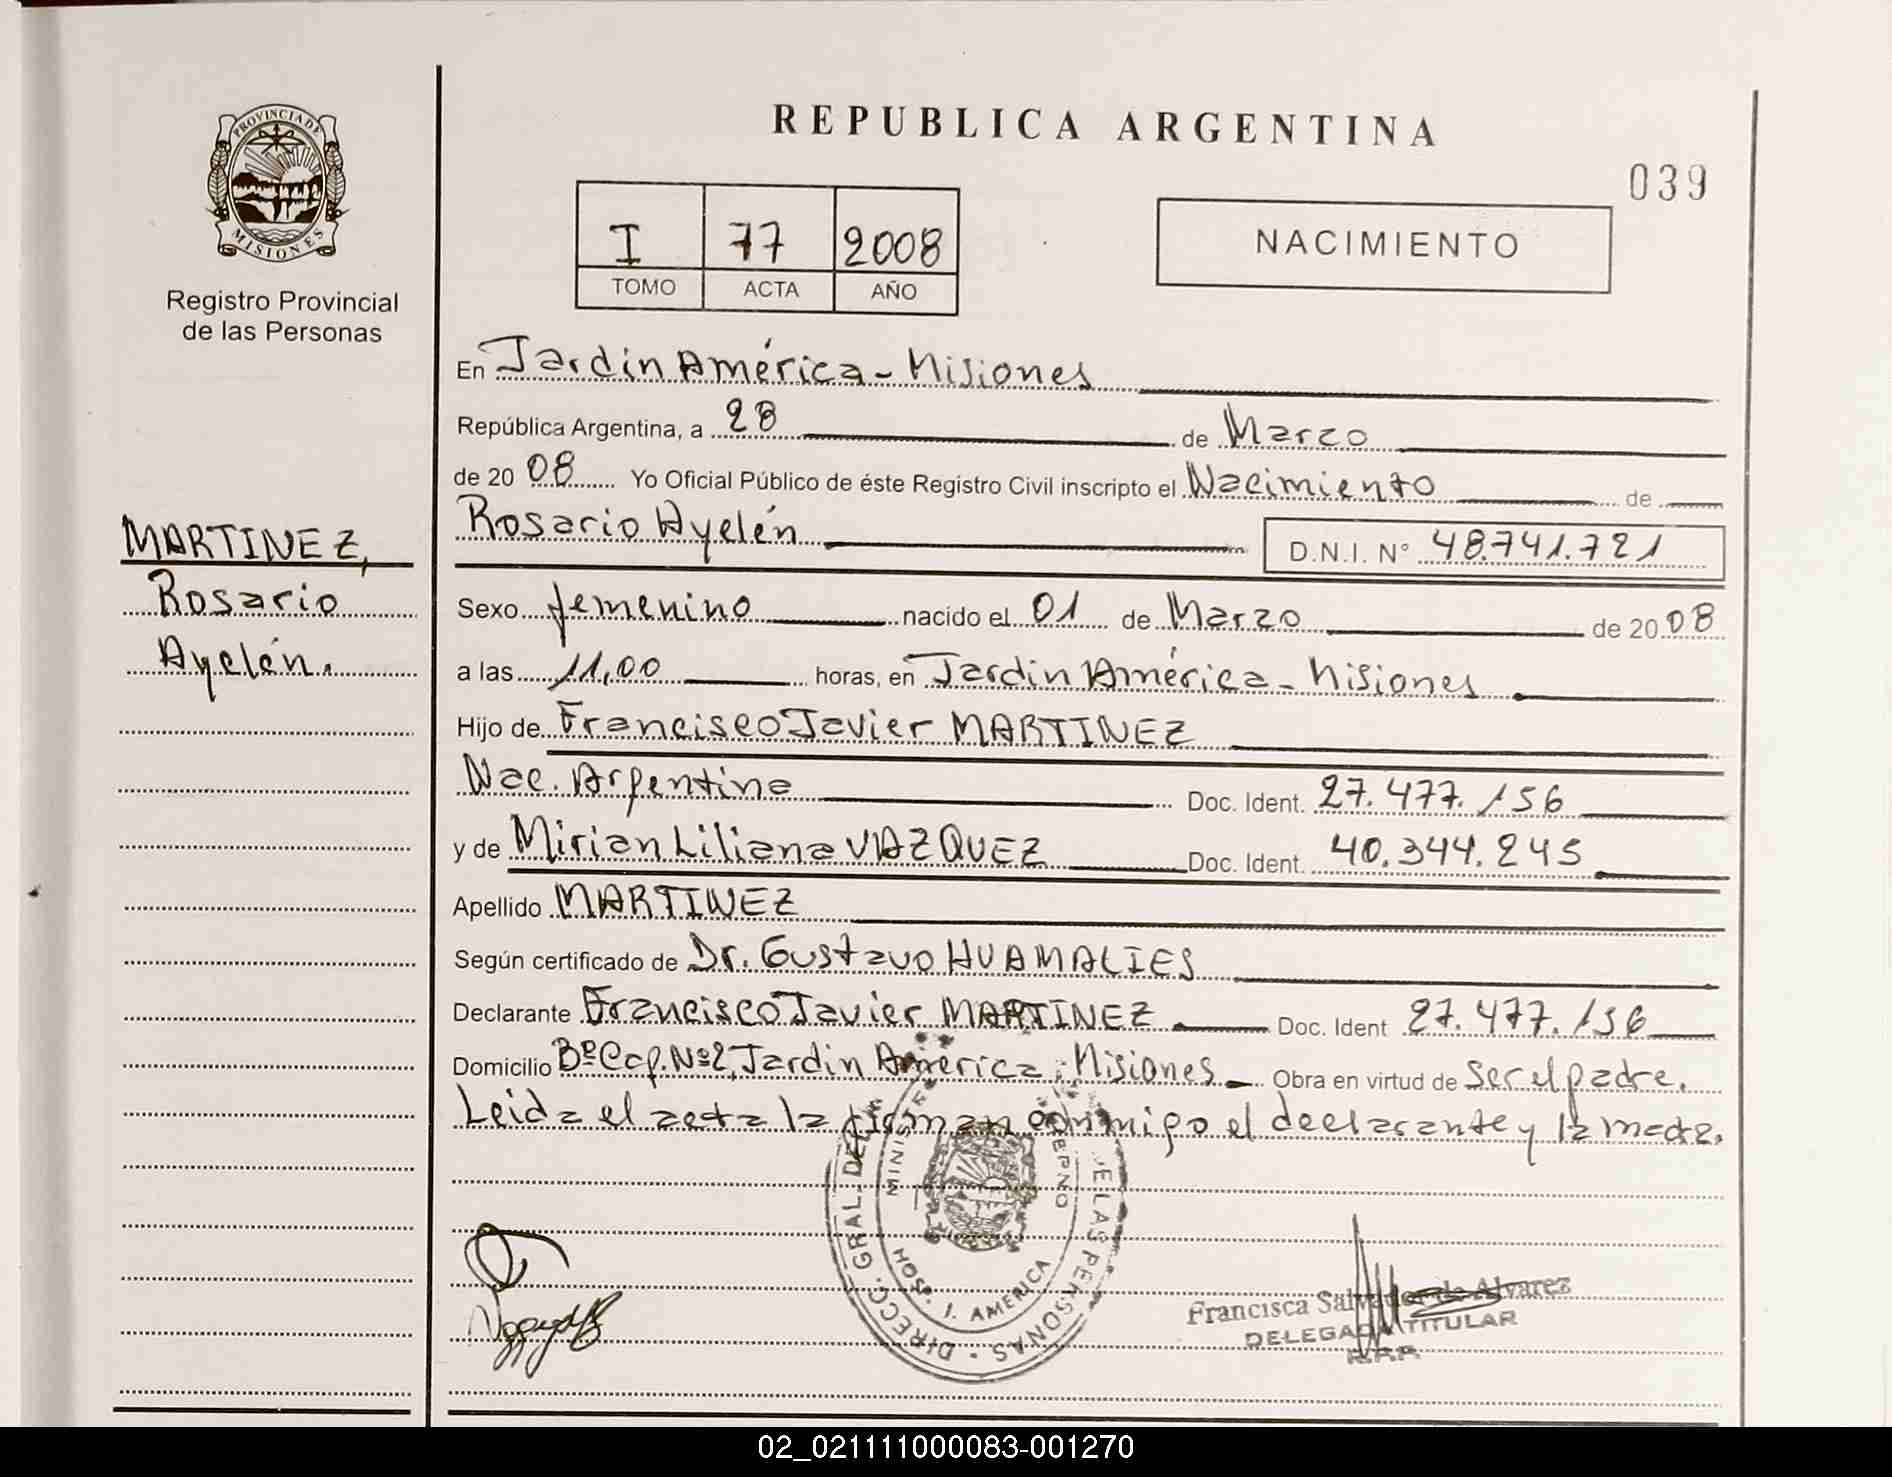 PROVINCIA DE
MISIONES
Registro Provincial
de las Personas
REPUBLICA ARGENTINA
039
I 77 2008
TOMO ACTA AÑO
NACIMIENTO
En Jardin América - Misiones
República Argentina, a 28 de Marzo
de 20 08 Yo Oficial Público de éste Registro Civil inscripto el Nacimiento de
Rosario Ayelén D.N.I. N° 48.741.721
MARTINEZ,
Rosario
Ayelén.
Sexo femenino nacido el 01 de Marzo de 20 08
a las 11,00 horas, en Jardin América - Misiones
Hijo de Francisco Javier MARTINEZ
Nac. Argentina Doc. Ident. 27.477.156
y de Mirian Liliana VAZQUEZ Doc. Ident. 40.344.245
Apellido MARTINEZ
Según certificado de Dr. Gustavo HUAMALIES
Declarante Francisco Javier MARTINEZ Doc. Ident 27.477.156
Domicilio Bº Cap. Nº2, Jardin América, Misiones Obra en virtud de ser el padre.
Leida el acta la firman conmigo el declarante y la madre.
DIRECC. GRAL. DE LAS PERSONAS
HOSP. J. AMERICA
Francisca Salvador de Alvarez
DELEGADA TITULAR
R.P.P.
02_021111000083-001270